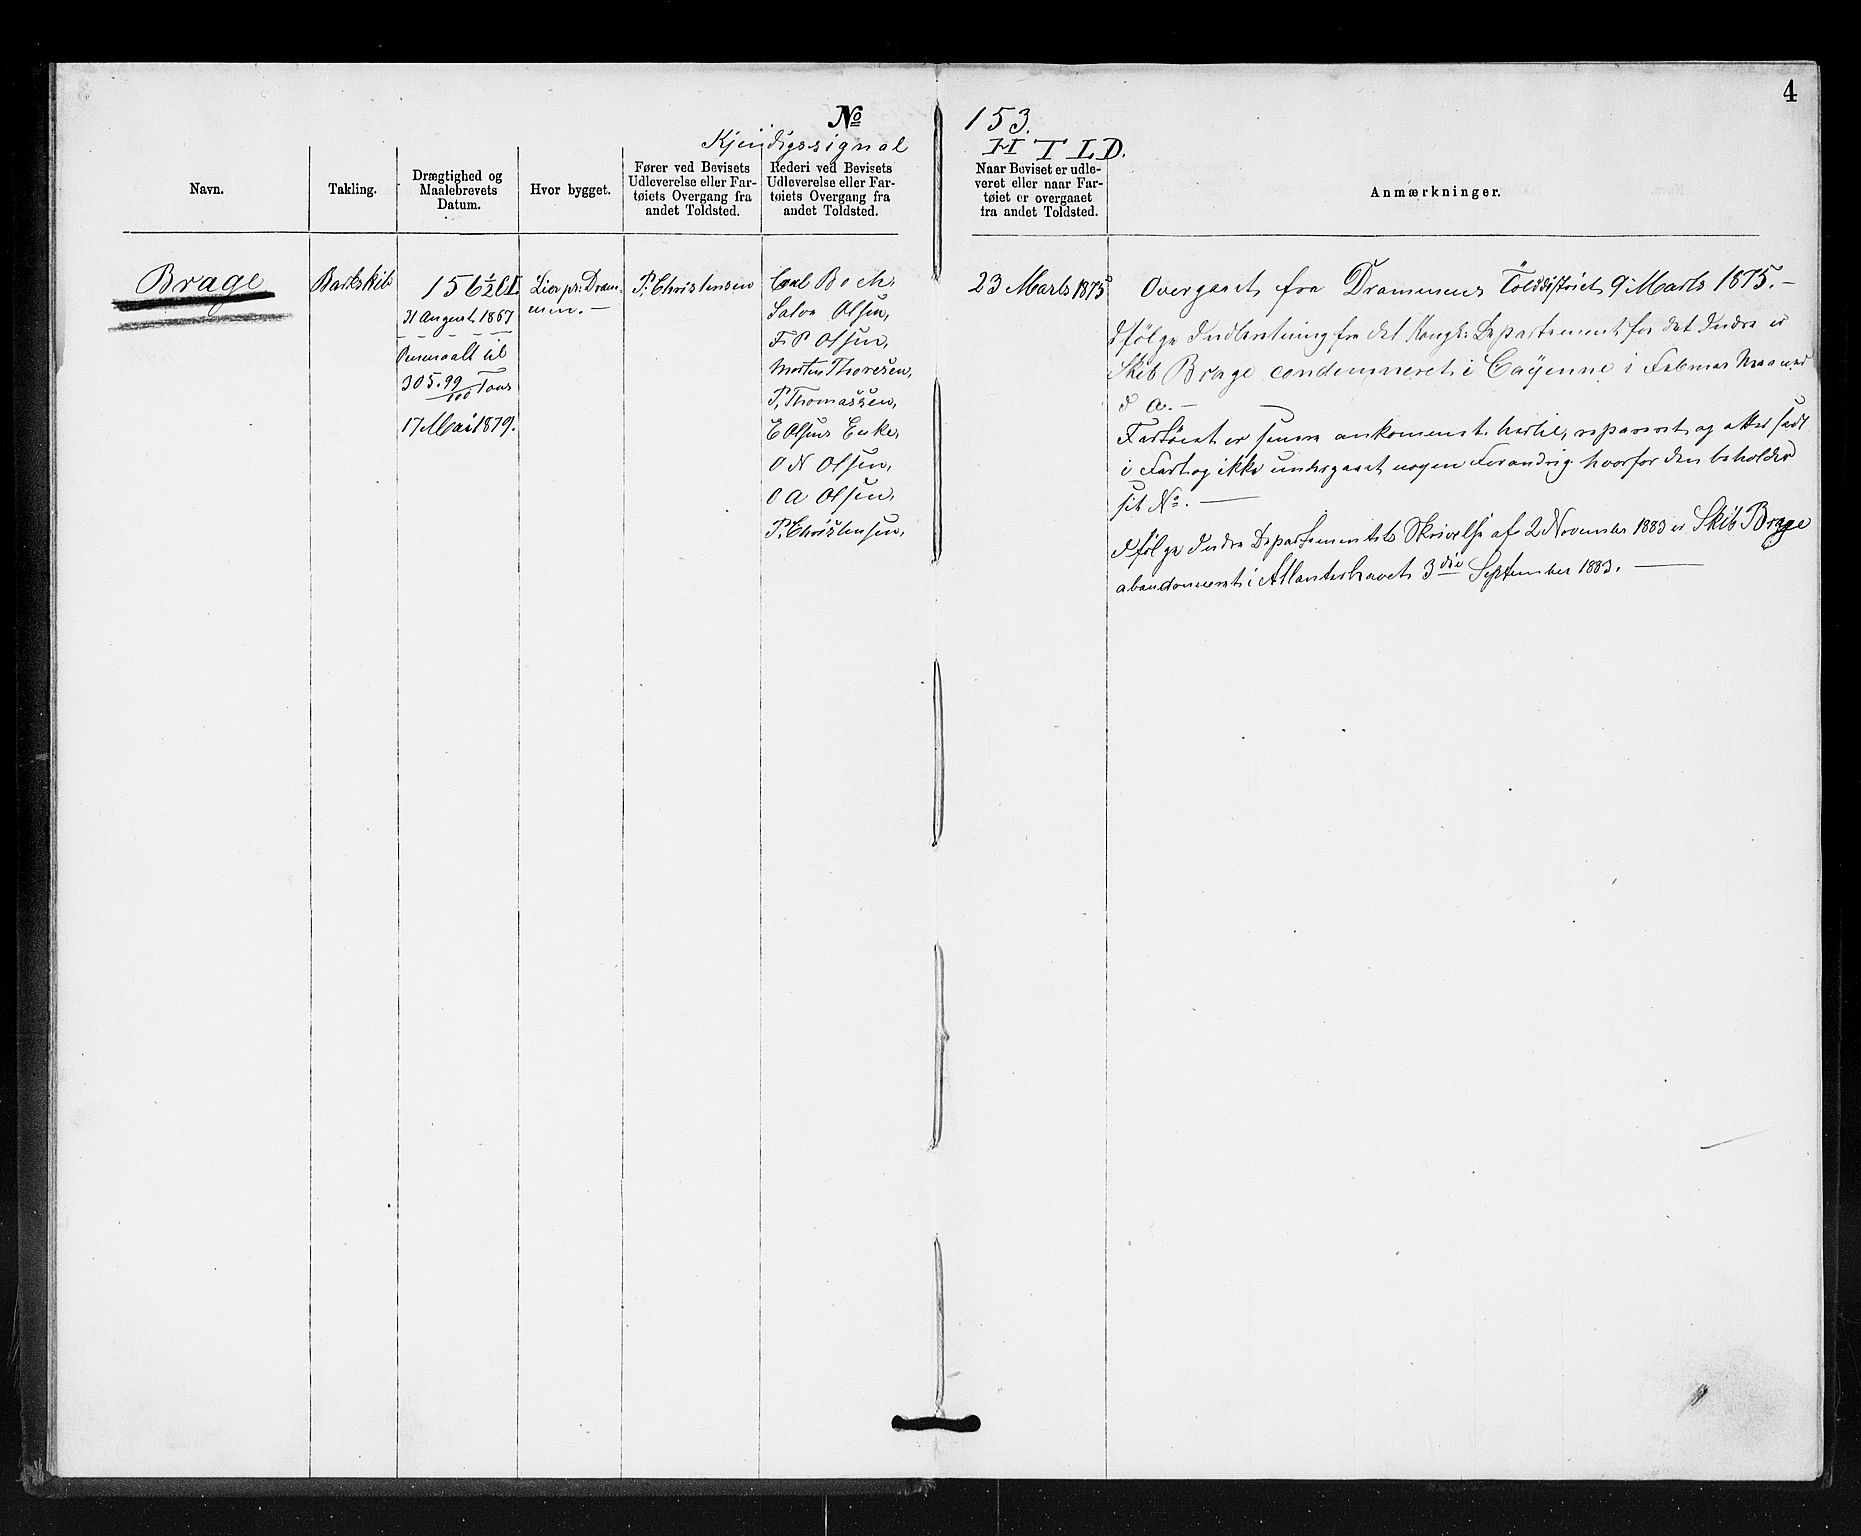 4
No 153.
Kjendigssignal H T L D.
Navn.
Takling.
Drægtighed og
Maalebrevets
Datum.
Hvor bygget.
Fører ved Bevisets
Udleverelse eller Far-
tøiets Overgang fra
andet Toldsted.
Rederi ved Bevisets
Udleverelse eller Far-
tøiets Overgang fra
andet Toldsted.
Naar Beviset er udle-
veret eller naar Far-
tøiet er overgaaet
fra andet Toldsted.
Anmærkninger.
Brage
Barkskib
156½ Cl.
31 August 1867
Ommaalt til
305.99/100 Tons
17 Mai 1879.
Lier pr: Dram-
men.—
P. Christensen
Carl Boch
Salve Olsen,
F P Olsen,
Morten Thoresen,
P. Thomassen,
E Olsens Enke,
O N Olsen,
O A Olsen,
P. Christensen,
23 Marts 1875
Overgaaet fra Drammens Tolddistrict 9 Marts 1875.—
Ifølge Indberetning fra det Kongl: Departement for det Indre er
Skib Brage condemneret i Cayenne i Februar Maaned
d A.—
Fartøiet er senere ankommet hertil, repareret og atter sadt
i Fart og ikke undergaaet nogen Forandrig hvorfor den beholder
sit No.—
Ifølge Indre Departementets Skrivelse af 2 November 1883 er Skib Brage
abandonneret i Atlanterhavet 3die September 1883.—